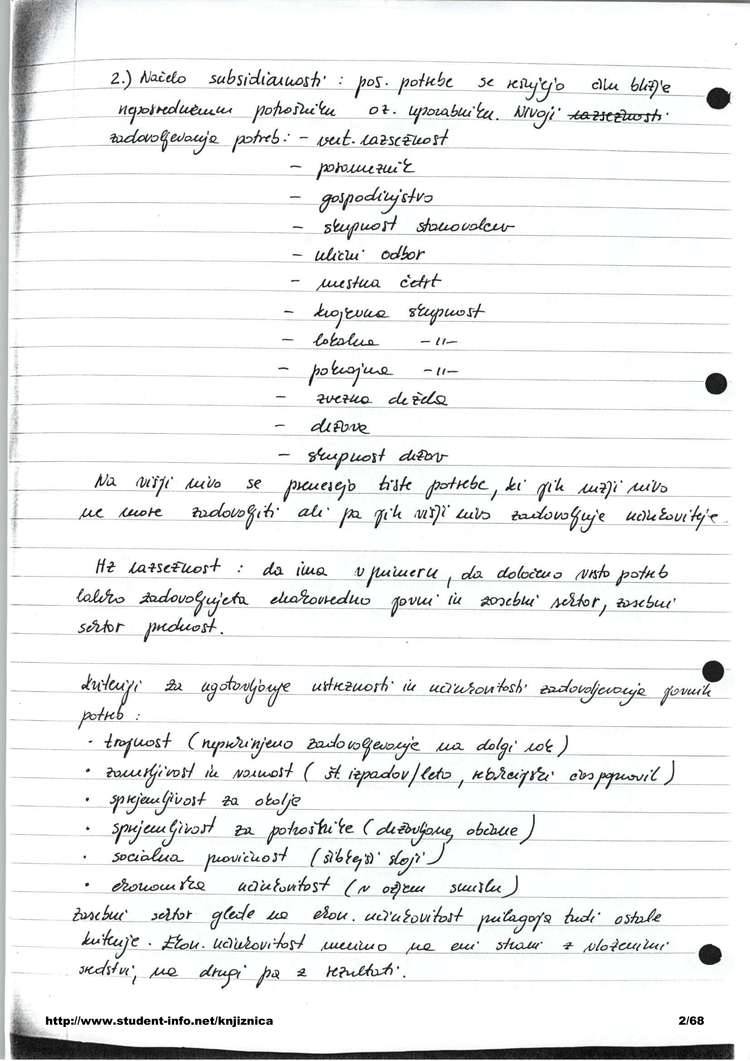 2.) Načelo subsidiarnosti : pos. potrebe se rešujejo čim bližje
neposrednemu potrošniku oz. uporabniku. Nivoji razsežnosti
zadovoljevanja potreb: - vert. razsežnost
- posameznik
- gospodinjstvo
- skupnost stanovalcev
- ulični odbor
- mestna četrt
- krajevna skupnost
- lokalna -11-
- pokrajina -11-
- zvezna dežela
- država
- skupnost držav
Na višji nivo se prenesejo tiste potrebe, ki jih nižji nivo
ne more zadovoljiti ali pa jih višji nivo zadovoljuje učinkoviteje.
HZ razsežnost : da ima v primeru, da določeno vrsto potreb
lahko zadovoljujeta enakovredno javni in zasebni sektor, zasebni
sektor prednost.
Kriteriji za ugotavljanje ustreznosti in učinkovitosti zadovoljevanja javnih
potreb :
· trajnost (neprekinjeno zadovoljevanje na dolgi rok)
· zanesljivost in varnost ( št izpadov/leto, reakcijski čas popravil )
· sprejemljivost za okolje
· sprejemljivost za potrošnike ( državljane, občane )
· socialna pravičnost (šibkejši sloji)
· ekonomska učinkovitost (v ožjem smislu)
Zasebni sektor glede na ekon. učinkovitost prilagaja tudi ostale
kriterije. Ekon. učinkovitost merimo na eni strani z vloženimi
sredstvi, na drugi pa z rezultati.
http://www.student-info.net/knjiznica 2/68